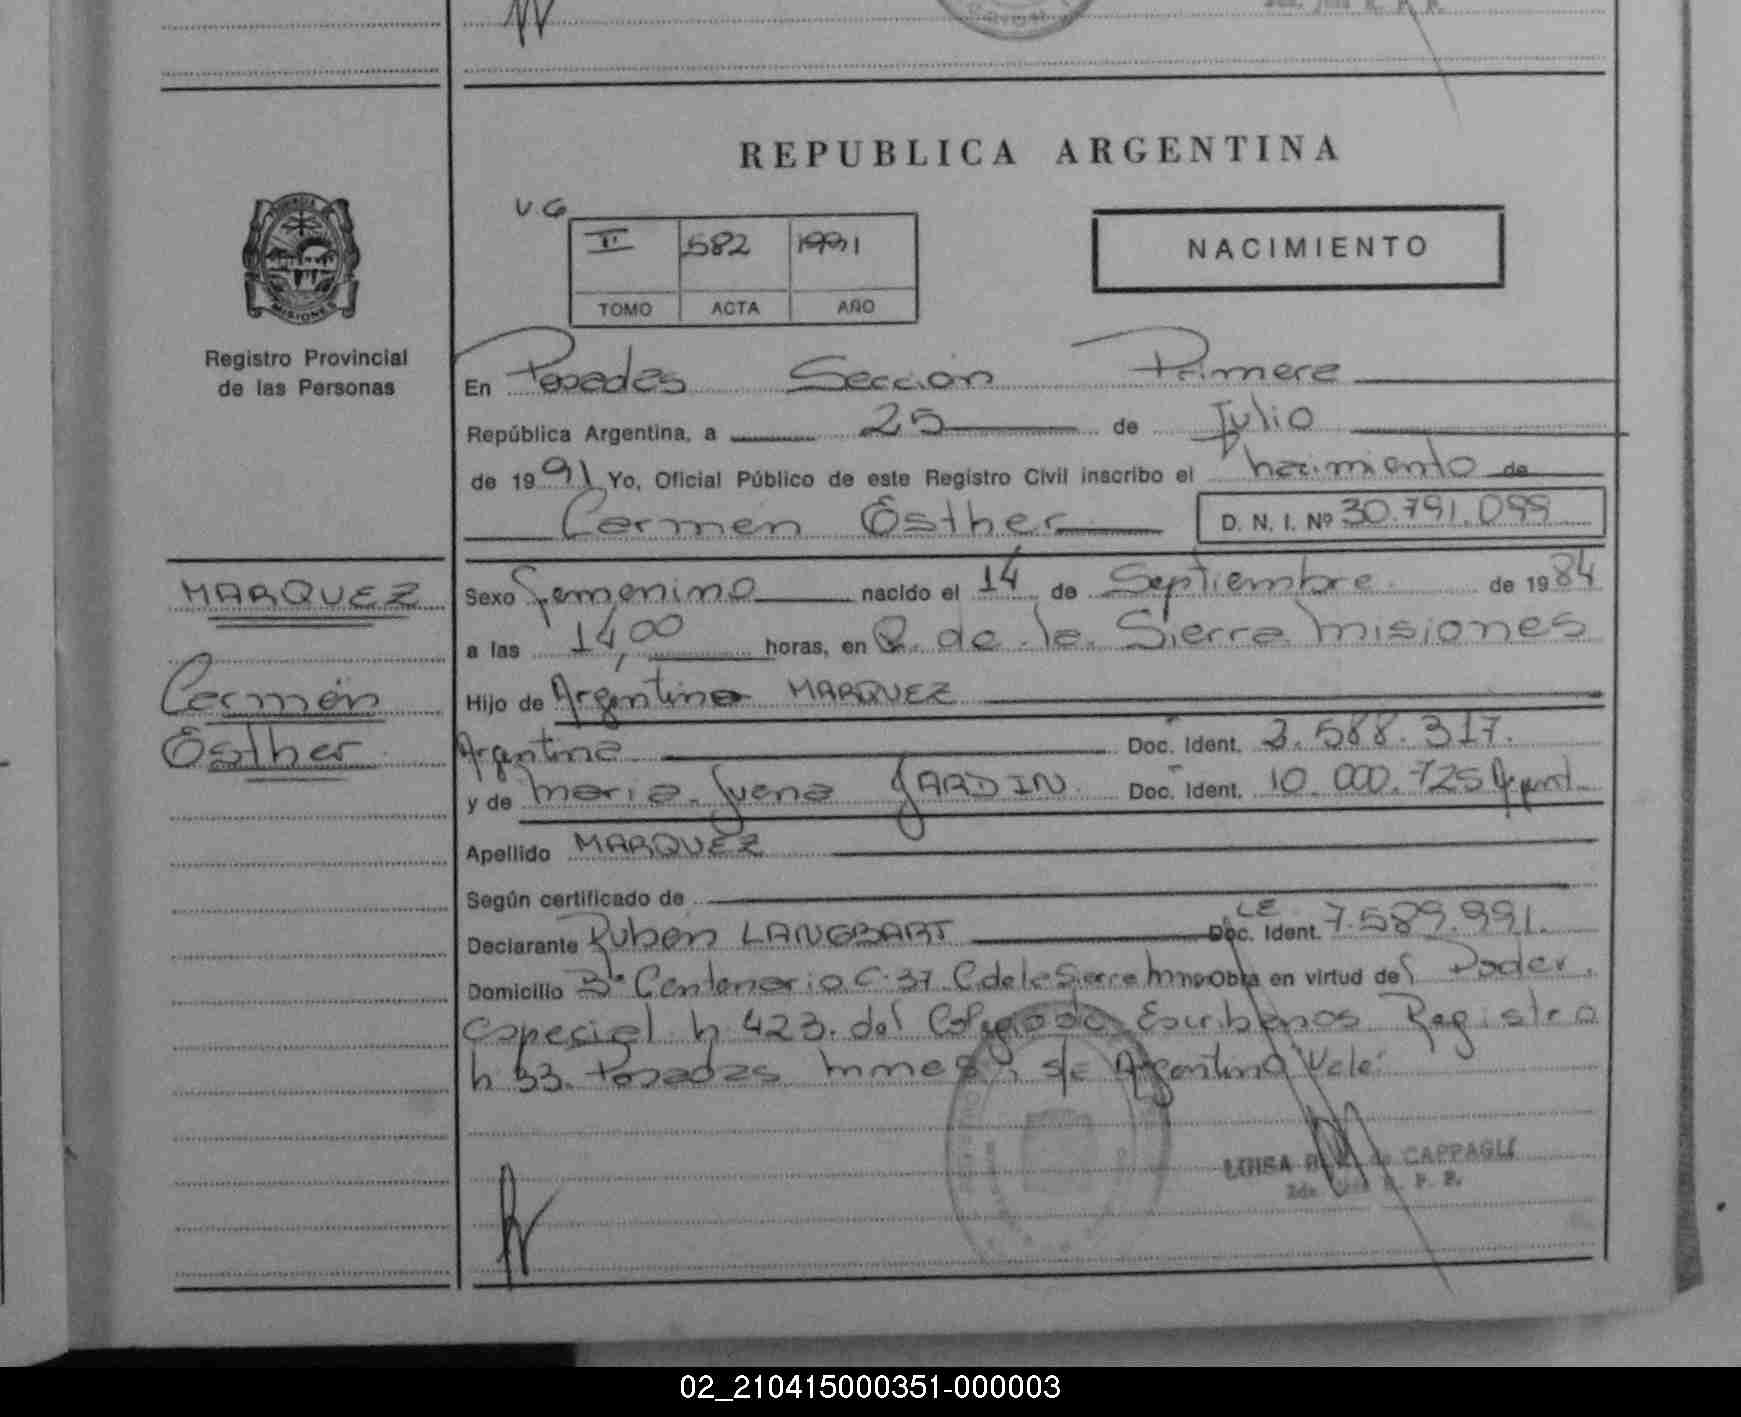 REPUBLICA ARGENTINA
V.G
II 582 1991
TOMO ACTA AÑO
NACIMIENTO
MISIONES
Registro Provincial
de las Personas
En Posadas Sección Primera
República Argentina, a 25 de Julio
de 1991 Yo, Oficial Público de este Registro Civil inscribo el nacimiento de
Carmen Esther D. N. I. Nº 30.791.099
MARQUEZ
Carmen
Esther
Sexo Femenino nacido el 14 de Septiembre de 1984
a las 14,00 horas, en C. de la Sierra Misiones
Hijo de Argentino MARQUEZ
Argentina Doc. Ident. 3.588.317.
y de Maria Juana JARDIN. Doc. Ident. 10.000.725 Argent.
Apellido MARQUEZ
Según certificado de
Declarante Ruben LANGBART LE Doc. Ident. 7.589.991.
Domicilio Bº Centenario C.37 C de la Sierra Mnes Obra en virtud del Poder
especial n 423. del Colegio de Escribanos Registro
n 33. Posadas Mnes. s/r Argentino Vale.
LUISA de CAPPAGLI
R. P. P.
02_210415000351-000003